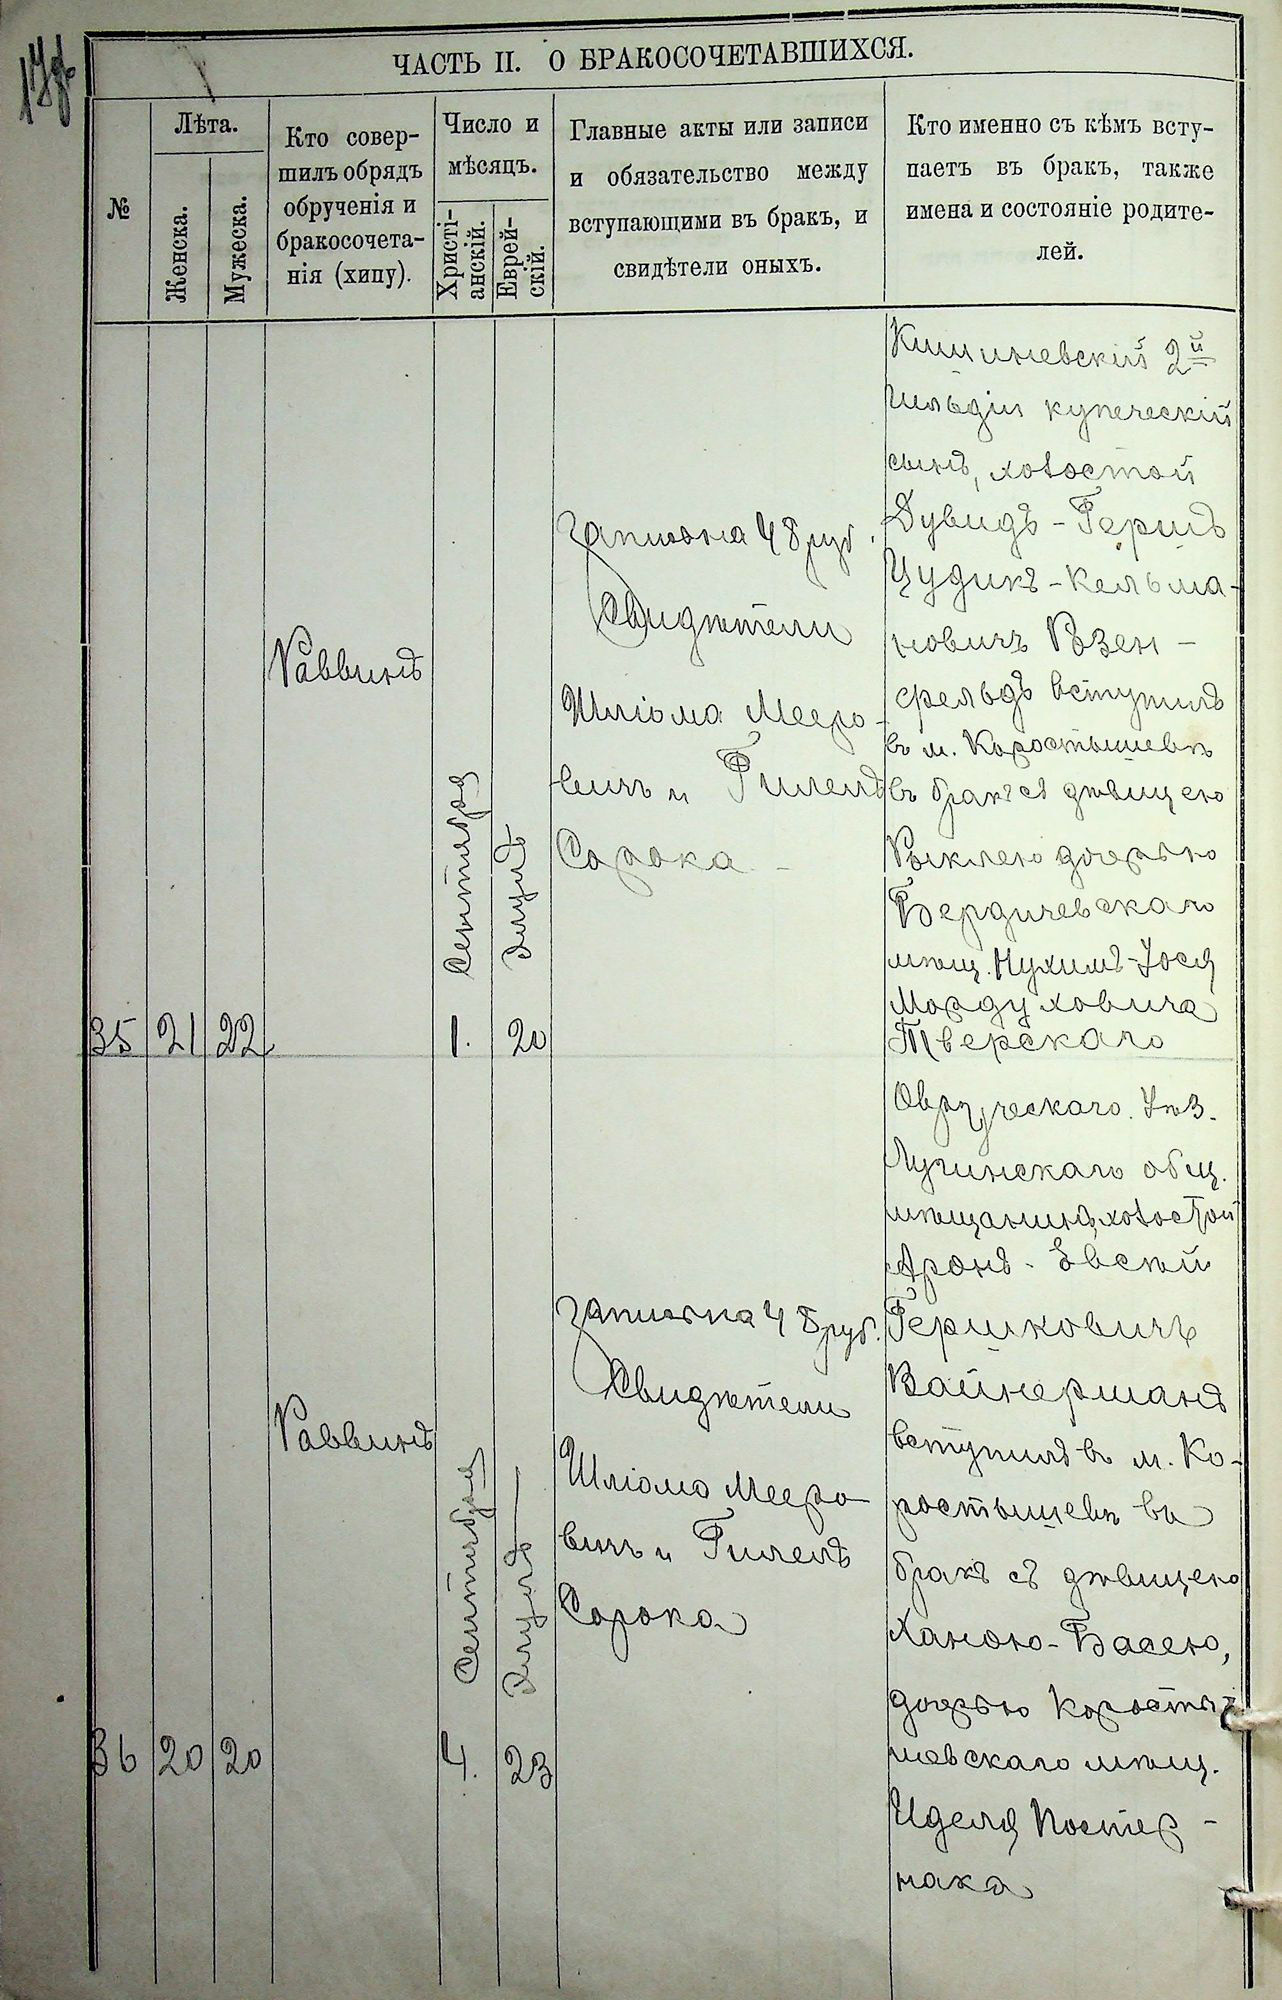 ЧАСТЬ II. О БРАКОСОЧЕТАВШИХСЯ.
№
Лѣта.
Женска.
Мужеска.
Кто совер-
шилъ обрядъ
обрученія и
бракосочета-
нія (хипу).
Число и
мѣсяцъ.
Христі-
анскій.
Еврей-
скій.
Главные акты или записи
и обязательство между
вступающими въ бракъ, и
свидѣтели оныхъ.
Кто именно съ кѣмъ всту-
паетъ въ бракъ, также
имена и состояніе родите-
лей.
35
21
22
Раввинъ
Сентября
1.
Элулъ
20
Записьна 48 руб.
Свидѣтели
Шліома Мееро-
вичъ и Гилель
Сорока
Кишиневскій 2й
гильдіи купеческій
сынъ, холостой
Дувидъ-Гершъ
Цудикъ-Кельма-
новичъ Розен-
фельдъ вступилъ
въ м. Коростышевѣ
въ бракъ съ дѣвицею
Рыклею дочерью
Бердичевскаго
мѣщ. Нухимъ-Іося
Мордуховича
Тверскаго
36
20
20
Раввинъ
Сентября
4.
Элулъ
23
Записьна 48 руб.
Свидѣтели
Шліома Мееро-
вичъ и Гилель
Сорока
Овручскаго Уѣз.
Лугинскаго общ.
мѣщанинъ, холостой
Аронъ-Евсѣй
Гершковичъ
Вайнерманъ
вступилъ въ м. Ко-
ростышевѣ въ
бракъ съ дѣвицею
Ханою-Басею,
дочерью Коросты-
шевскаго мѣщ.
Иделя Постер-
нака